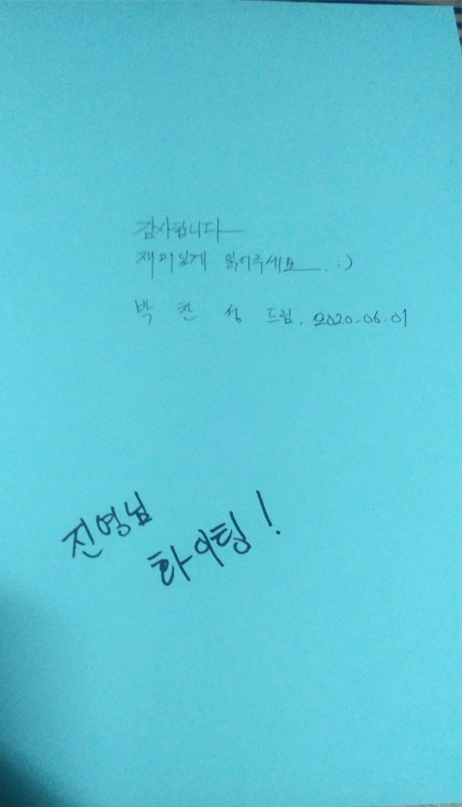 감사합니다
재미있게 읽어주세요. :)
박 찬 성 드림. 2020.06.01
진영님
화이팅!